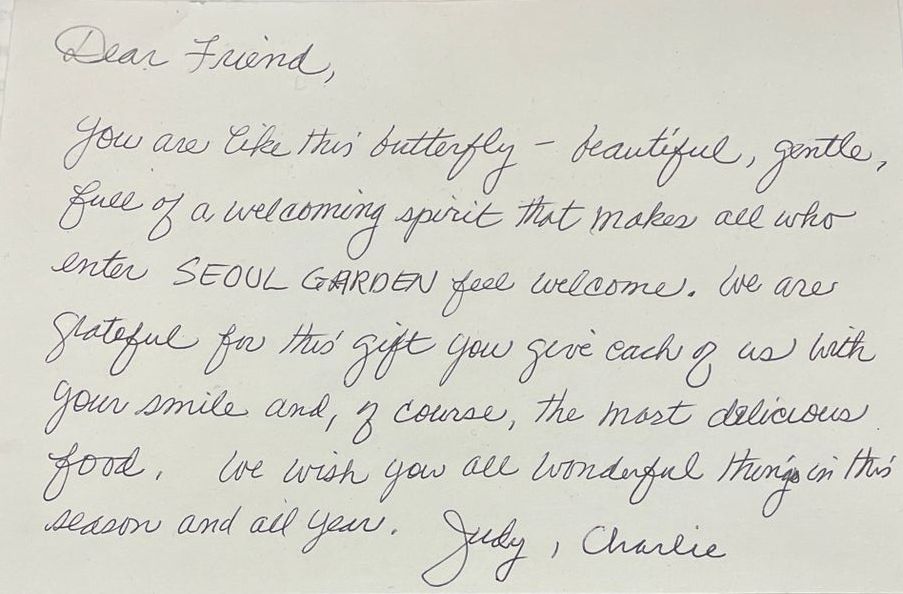 Dear Friend,
You are like this butterfly – beautiful, gentle,
full of a welcoming spirit that makes all who
enter SEOUL GARDEN feel welcome. We are
grateful for this gift you give each of us with
your smile and, of course, the most delicious
food. We wish you all wonderful things in this
season and all year. Judy, Charlie